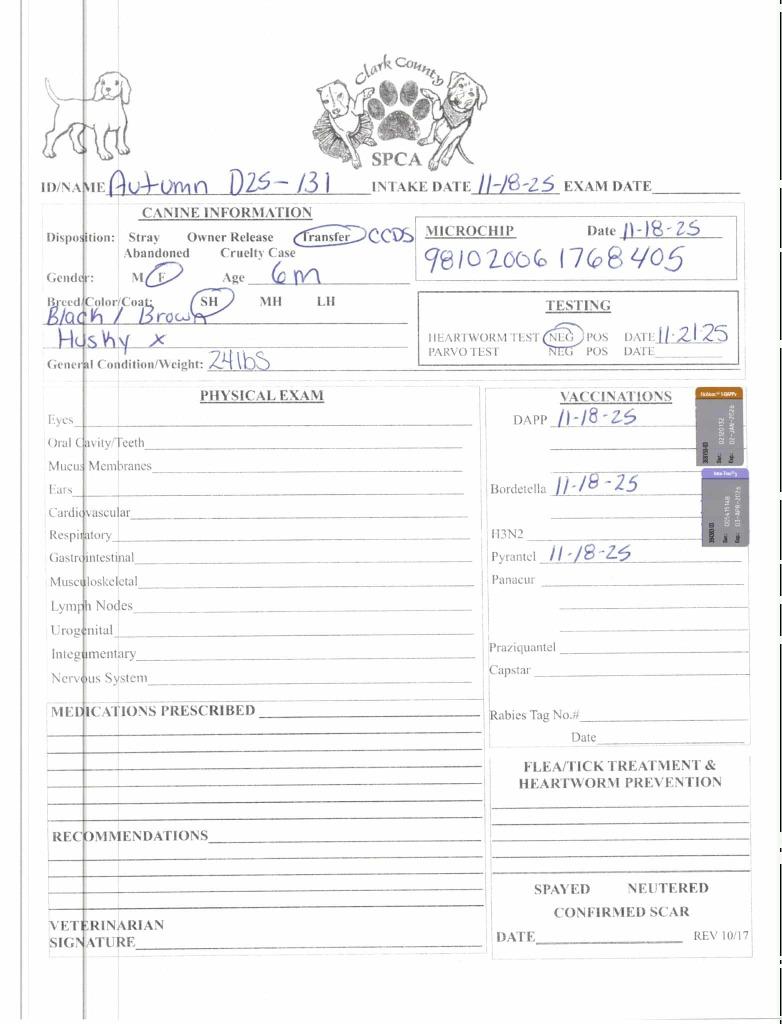 Clark County
SPCA
ID/NAME Autumn D25-131 INTAKE DATE 11-18-25 EXAM DATE
CANINE INFORMATION
Disposition: Stray Owner Release Transfer CCDS
Abandoned Cruelty Case
Gender: M F Age 6m
Breed/Color/Coat: SH MH LH
Black / Brown
Husky x
General Condition/Weight: 24lbs
MICROCHIP Date 11-18-25
981020061768405
TESTING
HEARTWORM TEST NEG POS DATE 11-21-25
PARVO TEST NEG POS DATE
PHYSICAL EXAM
Eyes
Oral Cavity/Teeth
Mucus Membranes
Ears
Cardiovascular
Respiratory
Gastrointestinal
Musculoskeletal
Lymph Nodes
Urogenital
Integumentary
Nervous System
MEDICATIONS PRESCRIBED
RECOMMENDATIONS
VETERINARIAN
SIGNATURE
VACCINATIONS
DAPP 11-18-25
Bordetella 11-18-25
H3N2
Pyrantel 11-18-25
Panacur
Praziquantel
Capstar
Rabies Tag No.#
Date
FLEA/TICK TREATMENT &
HEARTWORM PREVENTION
SPAYED NEUTERED
CONFIRMED SCAR
DATE REV 10/17